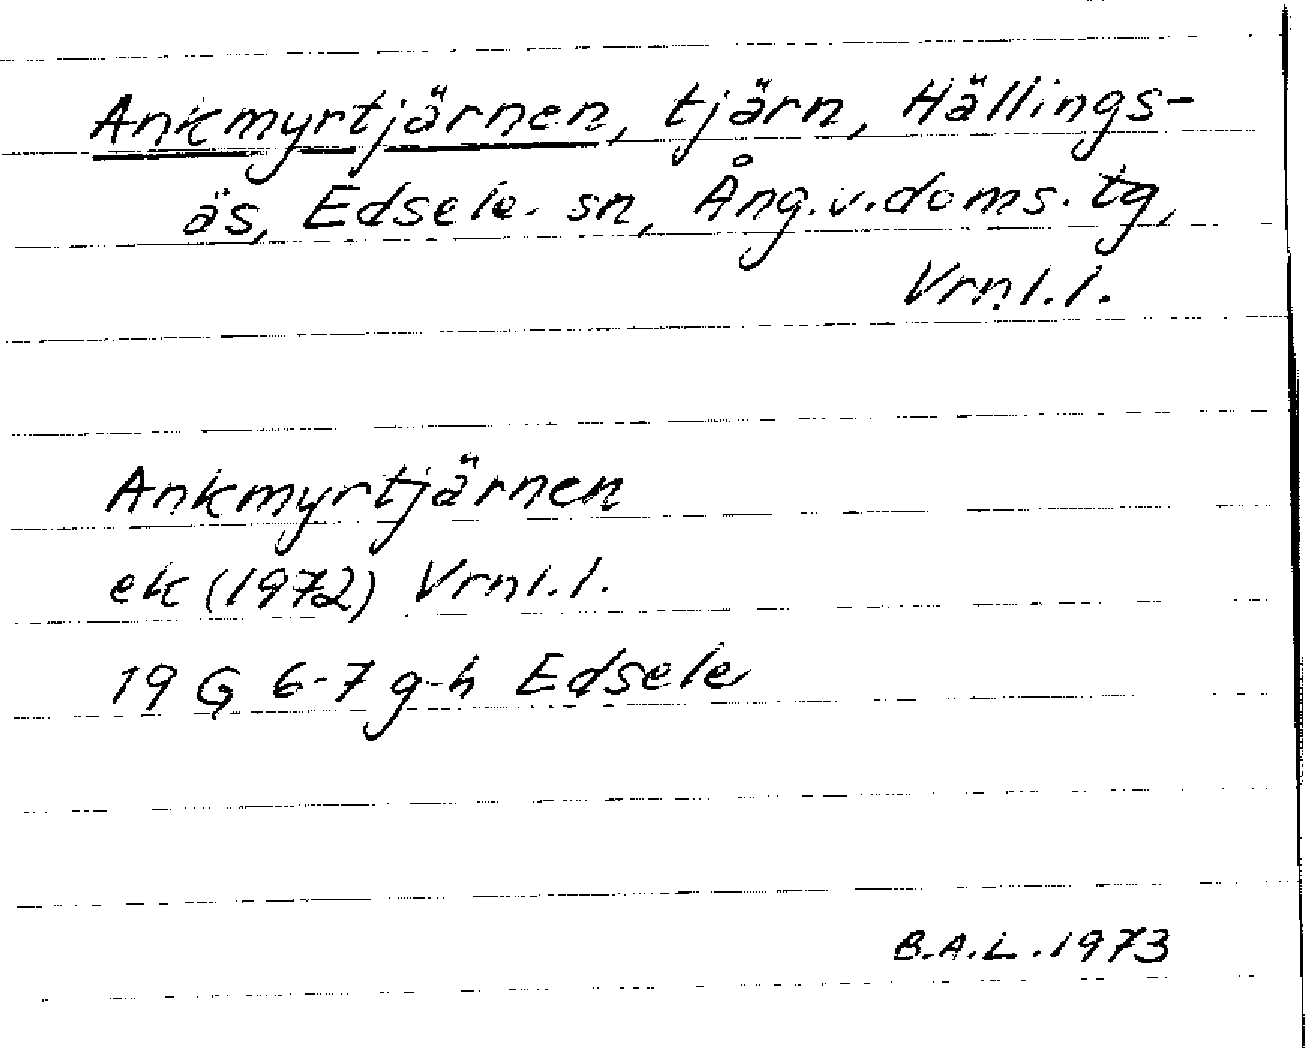 Ankmyrtjärnen, tjärn, Hällings-
äs, Edsele sn, Ång.v.doms.tg,
Vrnl.l.
Ankmyrtjärnen
ek (1972) Vrnl.l.
19 G 6-7 g-h Edsele
B.A.L. 1973